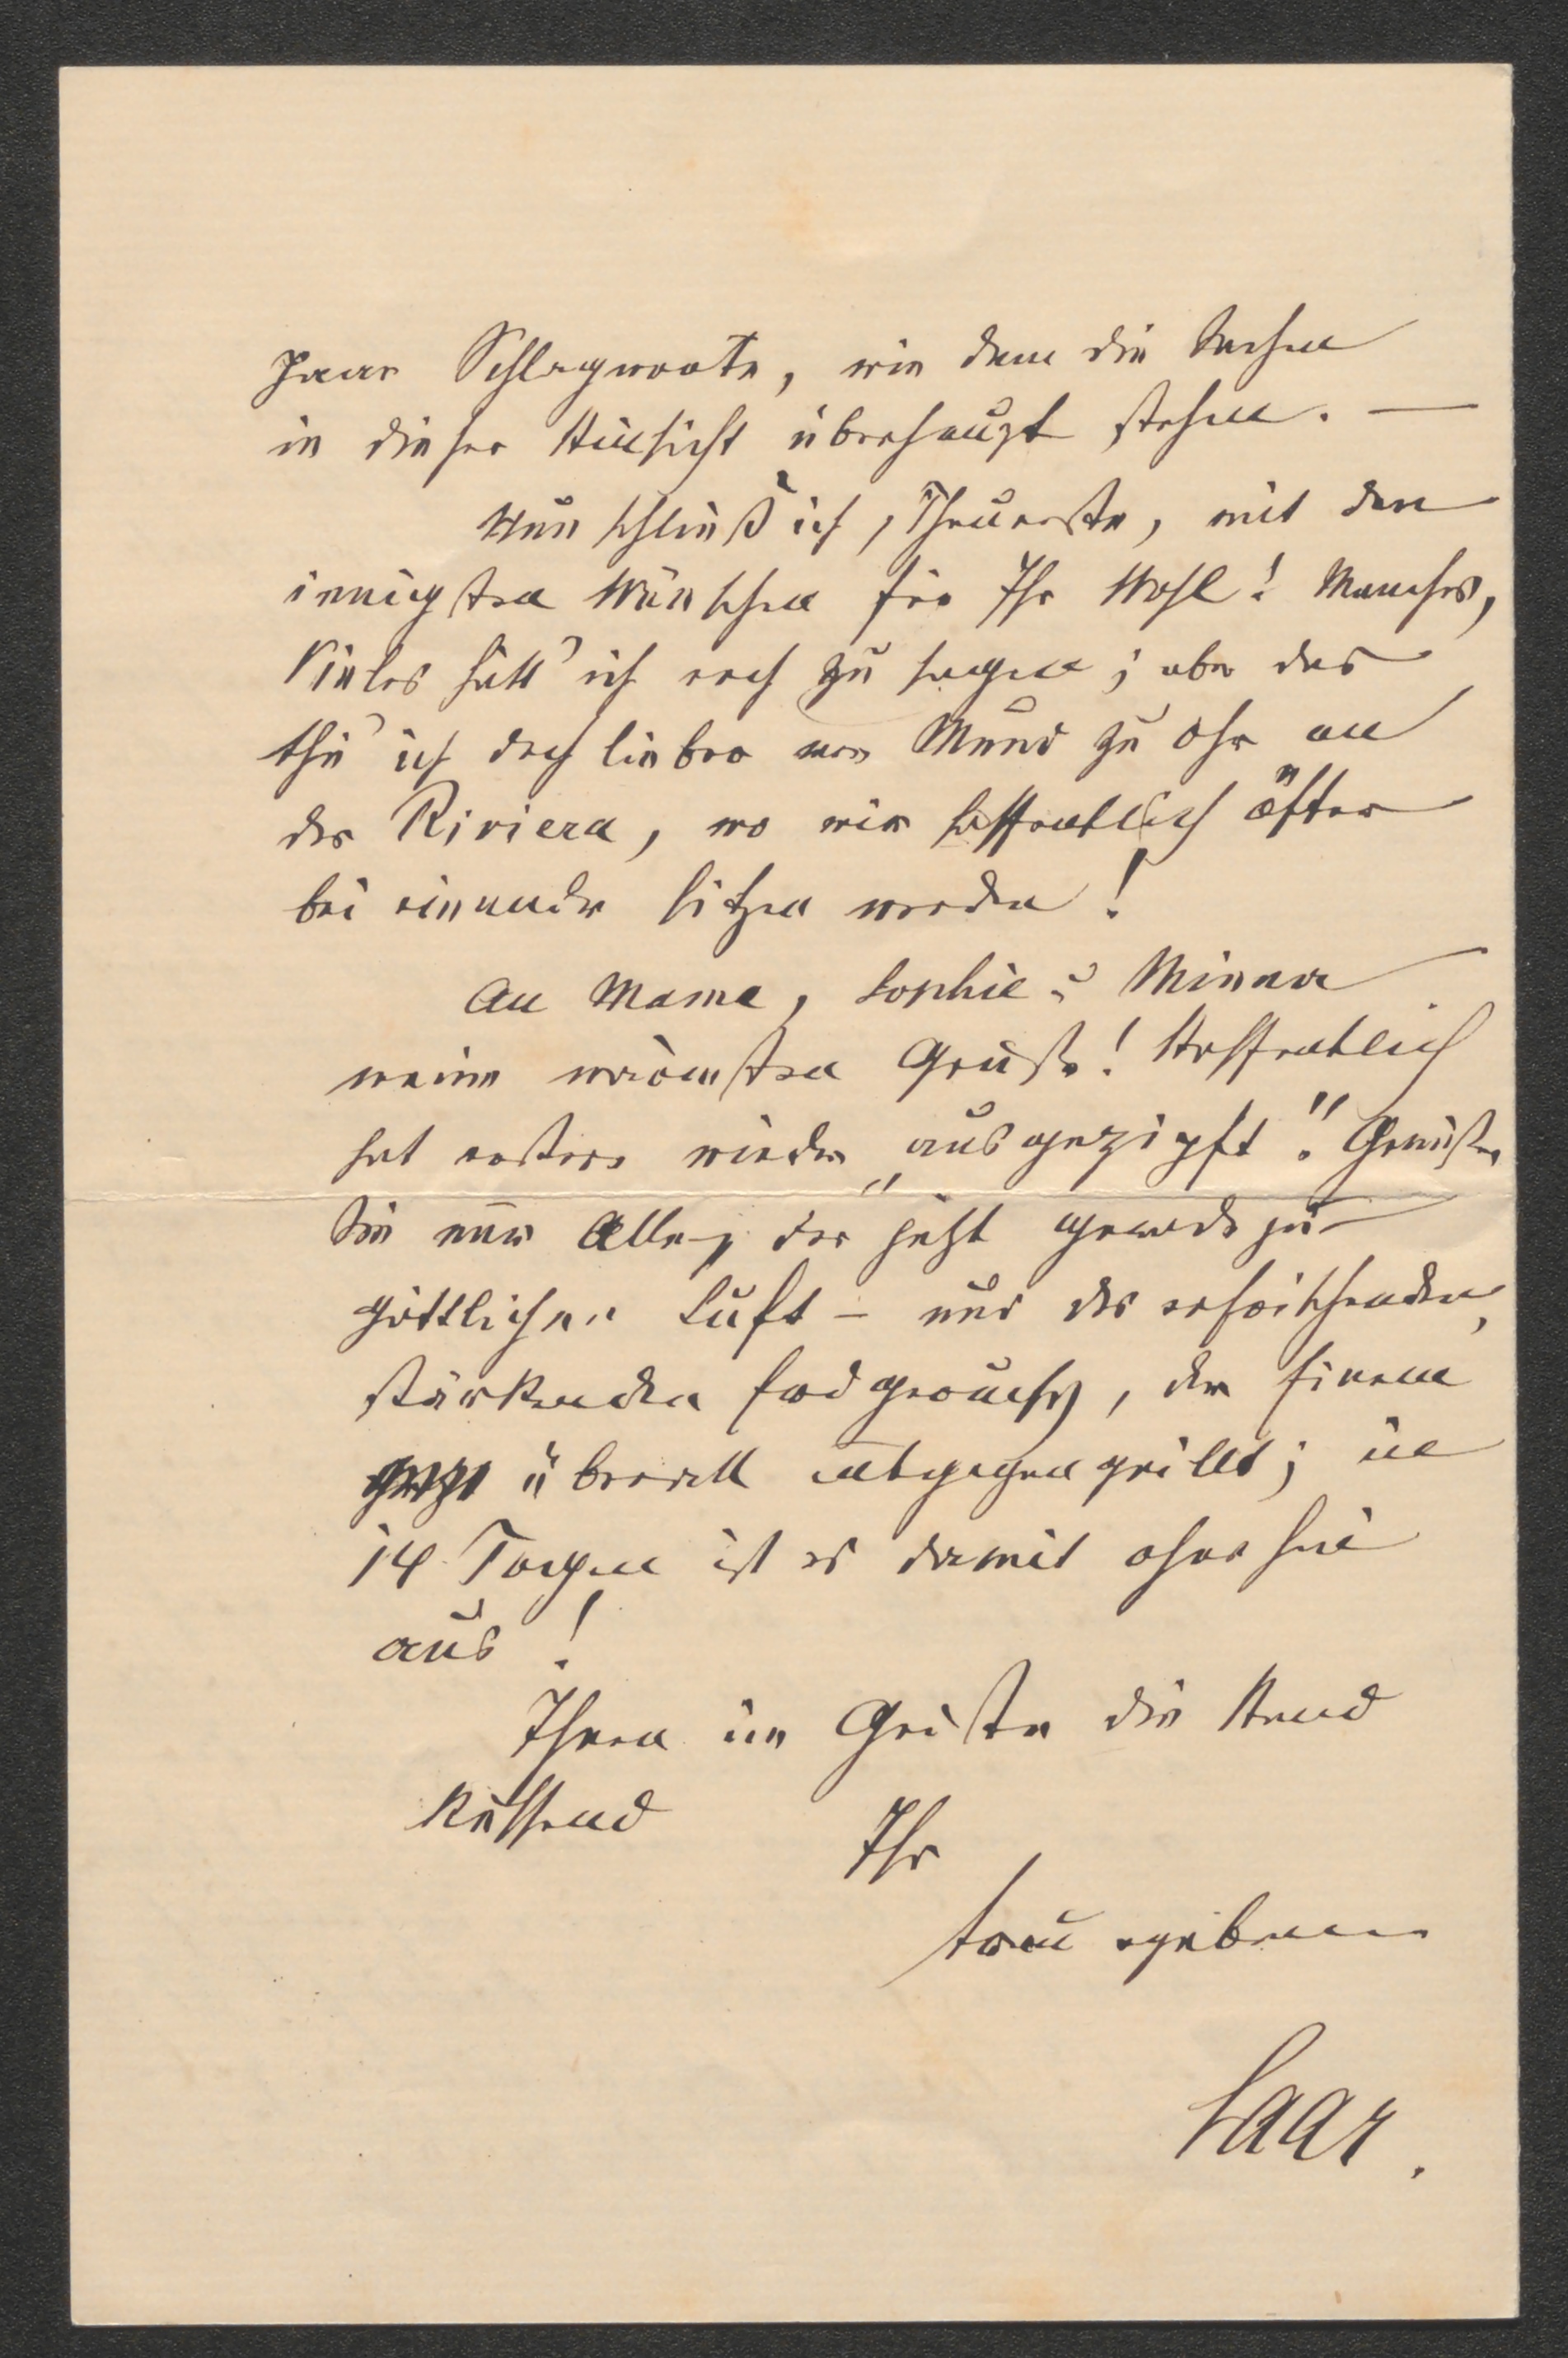 Paar Schlagworte, wie denn die Sachen
in dieser Hinsicht überhaupt stehen. —
Nun schließ' ich, Theuerste, mit den
innigsten Wünschen für Ihr Wohl! Manches,
Vieles hätt' ich noch zu sagen; aber das
thu' ich doch lieber von Mund zu Ohr an
der Riviera, wo wir hoffentlich öfter
bei einander sitzen werden!
An Mama, Sophie u Minna
meine wärmsten Grüße! Hoffentlich
hat erstere wieder „ausgezipft". Genießen
Sie nur Alle, der jetzt geradezu
göttlichen Luft – und des erfrischenden,
stärkenden Erdgeruchs, der Einem
überall entgegenquillt; in
14 Tagen ist es damit ohnehin
aus!
Ihnen im Geiste die Hand
küssend
Ihr
treu ergebener
Saar.